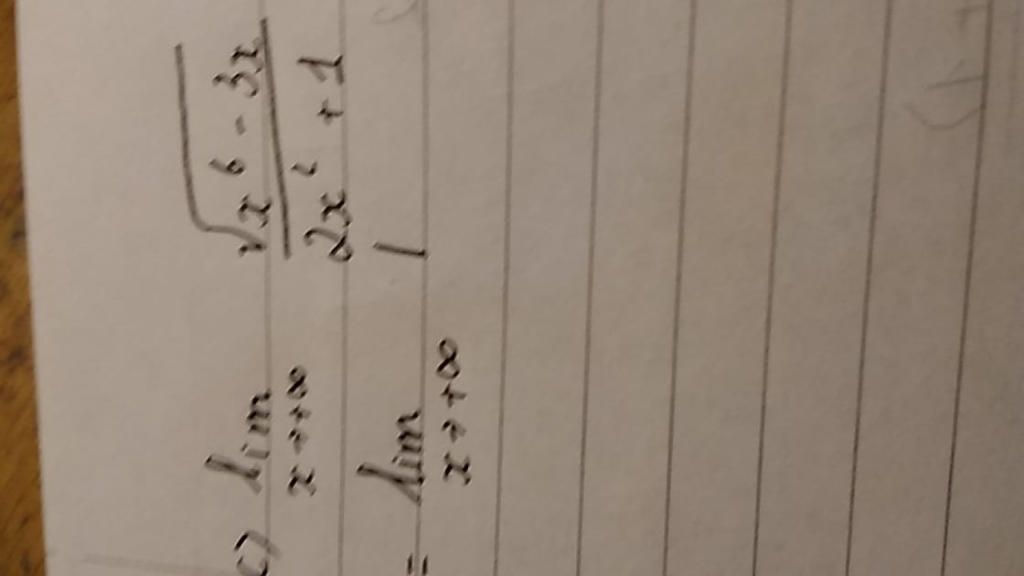 c) lim √x⁶ - 3x
x→+∞ 2x² + 1
= lim
x→+∞